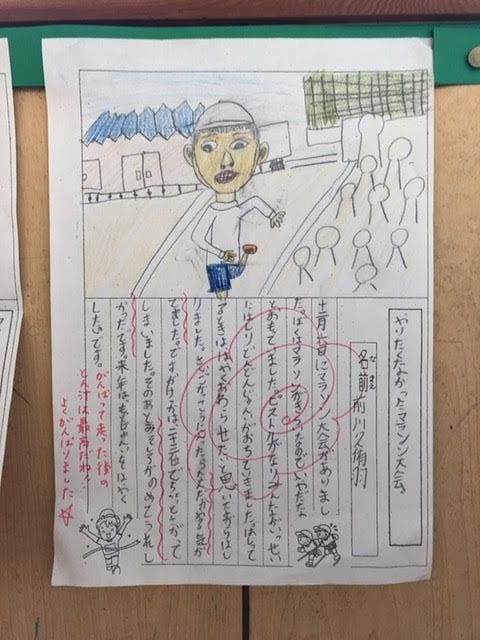 やりたくなかったマラソン大会
名前 前川久侑羽
なまえ
十二月六日にマラソン大会がありまし
た。ぼくはマラソンがきらいなのでいやだな
とおもてました。ピストルがなりみんながいっせい
にはしりどんどんじゅんいがおちていきました。はして
るときははやくおわらせたいと思いながらはし
りました。
でました。ですがけっかは二十三位でだいぶさがって
しまいました。そのあとみそしるがのめてうれし
かったです。来年は、もうちょっとはやく
したいです。
がんばって走った後の
とん汁は最高だね！
よくがんばりました